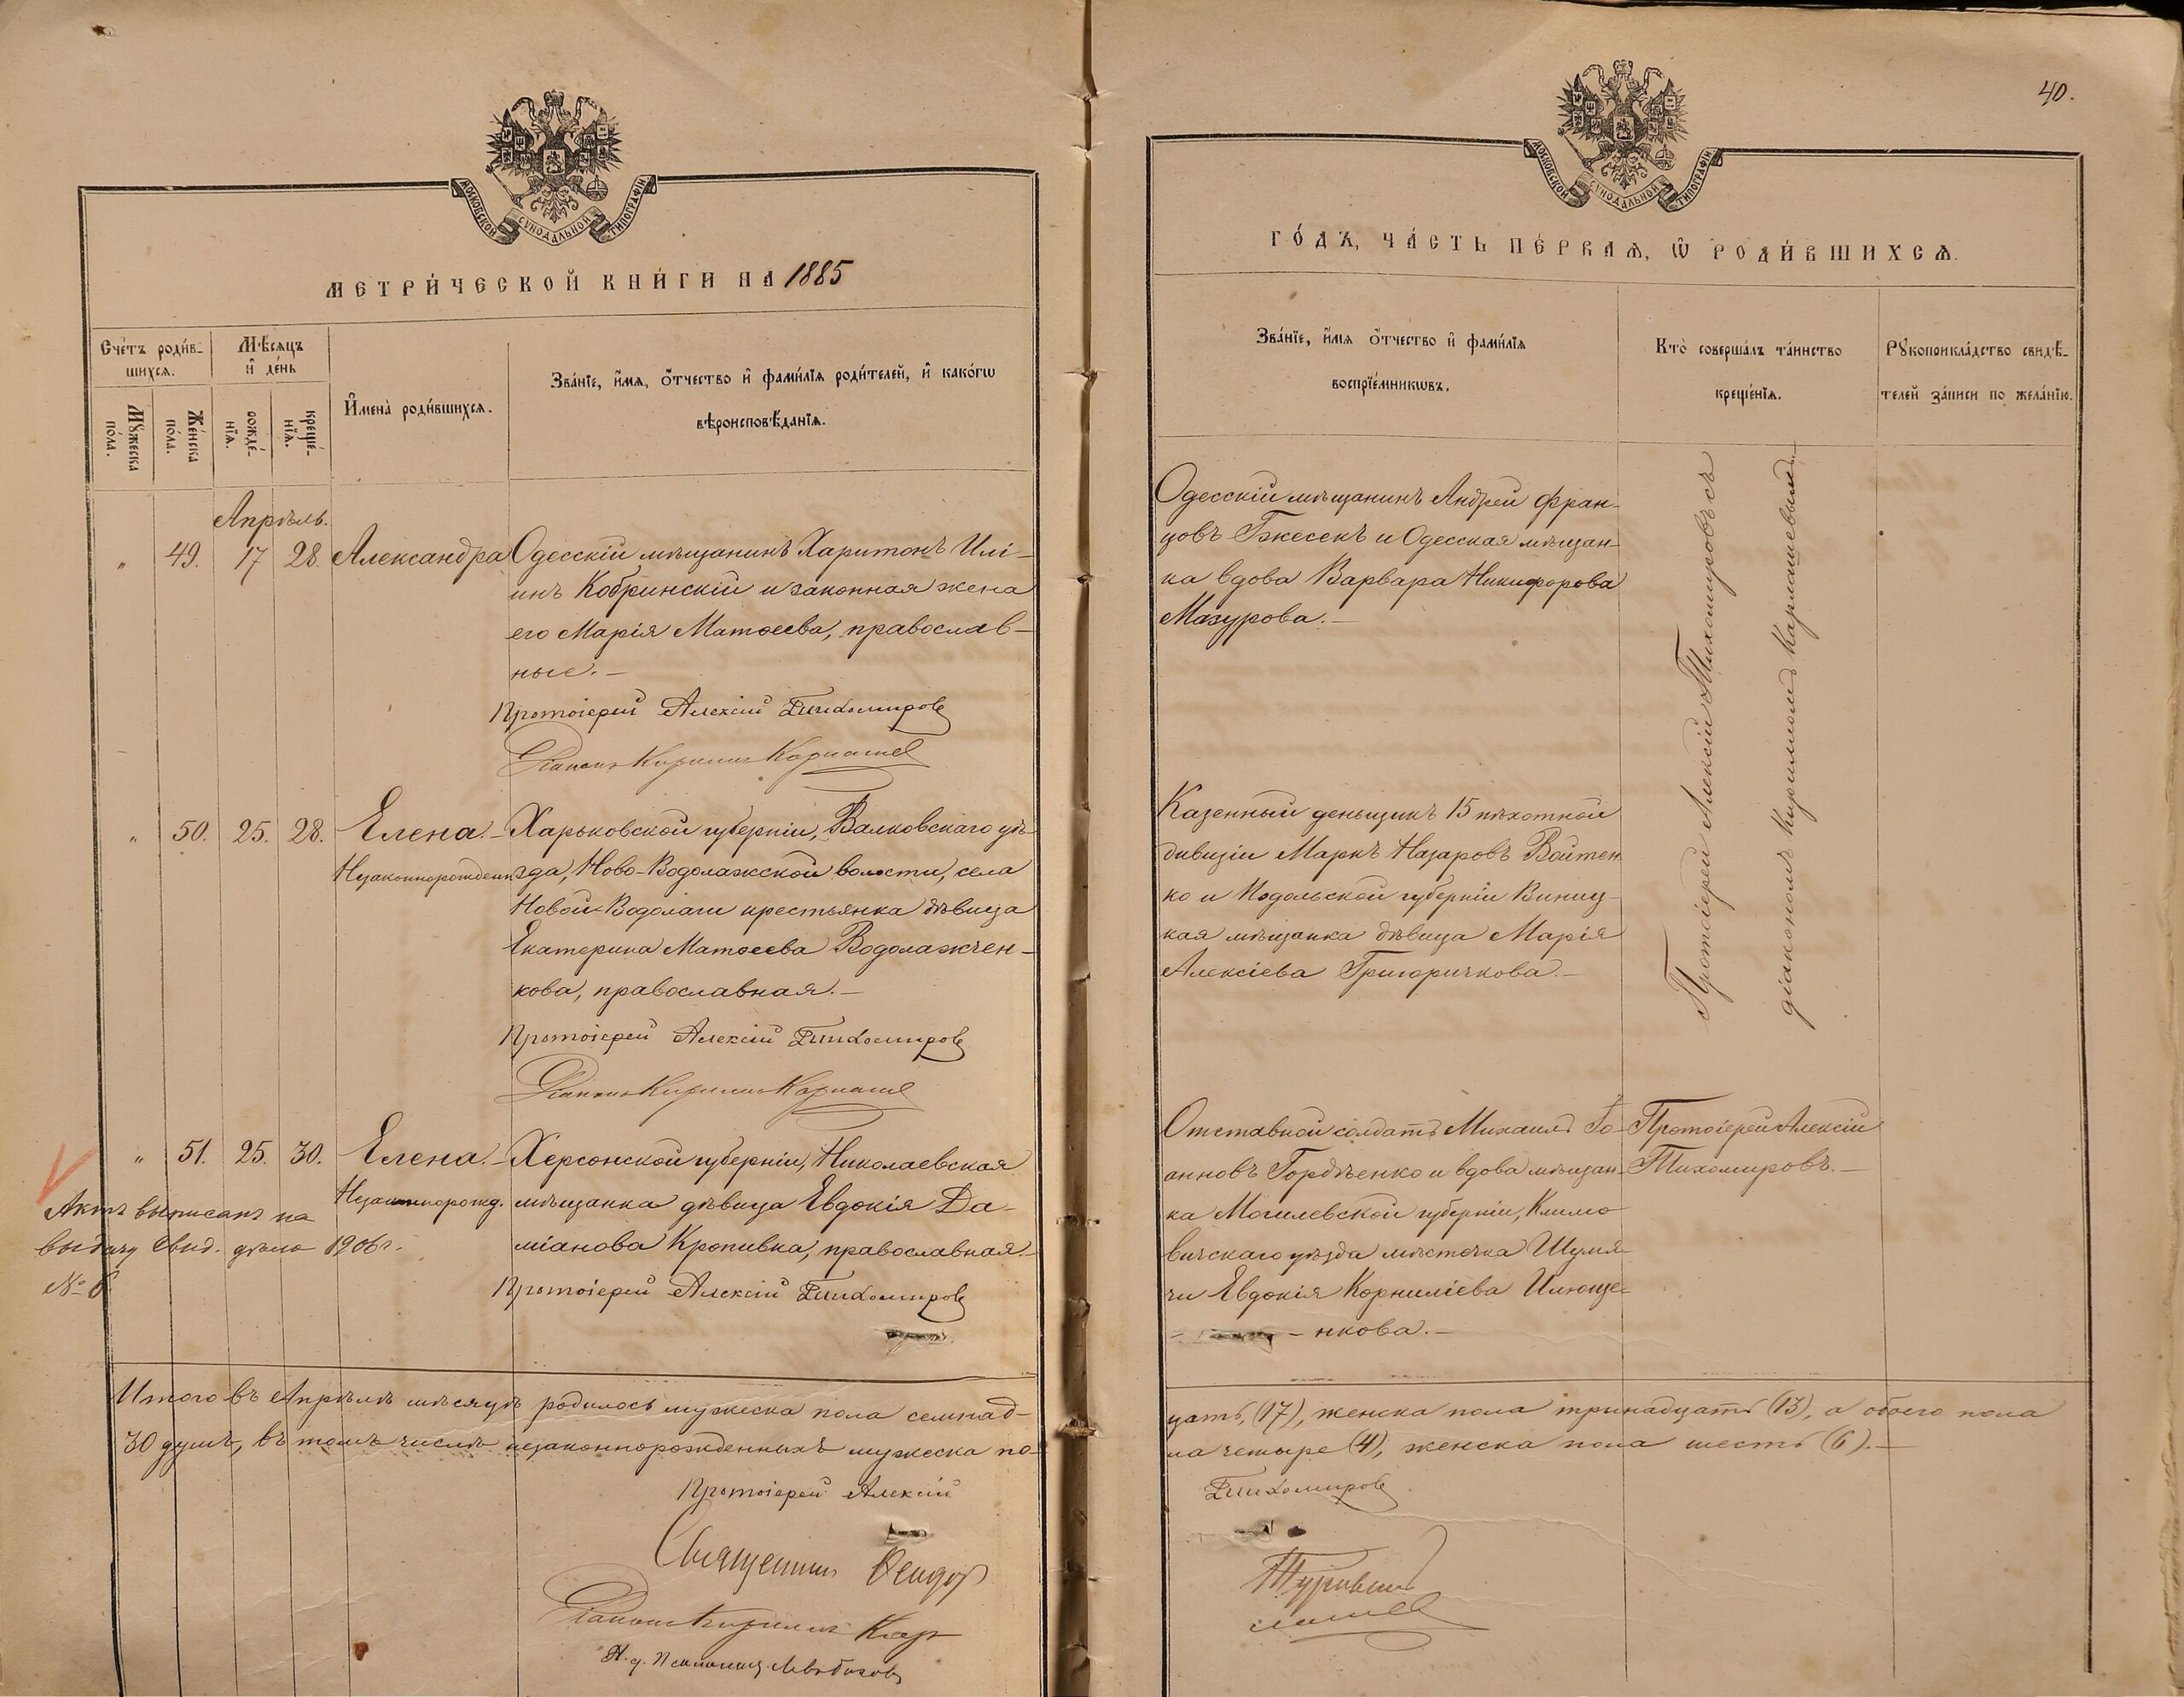 МОСКОВСКОЙ СУНОДАЛЬНОЙ ТИПОГРАФІИ
МЕТРИ́ЧЕСКОЙ КНИ́ГИ НА 1885
Сче́тъ роди́в-
шихсѧ.
Мѣ́сѧцъ
и҆ де́нь
Мꙋ́жеска
по́ла.
Же́нска
по́ла.
рожде́-
нїѧ.
креще́-
нїѧ.
И҆мена̀ роди́вшихсѧ.
Зва́нїе, и҆́мѧ, ѻ҆́тчество и҆ фами́лїѧ роди́телей, и҆ како́гѡ
вѣроисповѣ́данїѧ.
Апрѣль.
" 49. 17 28. Александра Одесскій мѣщанинъ Харитонъ Илі-
инъ Кобринскій и законная жена
его Марія Матѳеева, православ-
ные.-
Протоіерей Алексій Тихомировъ
Діаконъ Кириллъ Кармашев
" 50. 25. 28. Елена.- Харьковской губерніи, Валковскаго уѣ-
Незаконнорожденн. зда, Ново-Водолажской волости, села
Новой-Водолаги крестьянка дѣвица
Екатерина Матѳеева Водолажчен-
кова, православная.-
Протоіерей Алексій Тихомировъ
Діаконъ Кириллъ Кармашев
" 51. 25. 30. Елена.- Херсонской губерніи, Николаевская
Незаконнорожд. мѣщанка дѣвица Евдокія Да-
міанова Кропивка, православная.-
Протоіерей Алексій Тихомировъ
Актъ выписанъ на
выдачу свид. дѣло 1906 г.
№ 6
Итого въ Апрѣлѣ мѣсяцѣ родилось мужеска пола семнад-
30 душъ, въ томъ числѣ незаконнорожденныхъ мужеска по-
Протоіерей Алексій
Священник Ѳеодор
Діаконъ Кириллъ Кар
И. д. Псаломщ.
40.
МОСКОВСКОЙ СУНОДАЛЬНОЙ ТИПОГРАФІИ
ГО́ДЪ, ЧА́СТЬ ПЕ́РВАѦ, Ѡ҆ РОДИ́ВШИХСѦ.
Зва́нїе, и҆́мѧ ѻ҆́тчество и҆ фами́лїѧ
воспрїе́мникѡвъ.
Кто̀ соверша́лъ та́инство
креще́нїѧ.
Рꙋкоприкла́дство свидѣ́-
телей за́писи по жела́нїю.
Одесскій мѣщанинъ Андрей Фран-
цовъ Гжесекъ и Одесская мѣщан-
ка вдова Варвара Никифорова
Мазурова.-
Казенный деньщикъ 15 пѣхотной
дивизіи Маркъ Назаровъ Войтен-
ко и Подольской губерніи Виниц-
кая мѣщанка дѣвица Марія
Алексіева Григоричкова.-
Протоіерей Алексій Тихомировъ съ
діакономъ Кирилломъ Кармашевымъ.-
Отставной солдатъ Михаилъ Іо-
анновъ Гордѣенко и вдова мѣщан-
ка Могилевской губерніи, Климо-
вичскаго уѣзда мѣстечка Шумя-
чи Евдокія Корниліева Илюще-
- нкова.-
Протоіерей Алексій
Тихомировъ.-
цать, (17), женска пола тринадцать (13), а обоего пола
ла четыре (4), женска пола шесть (6).-
Тихомировъ